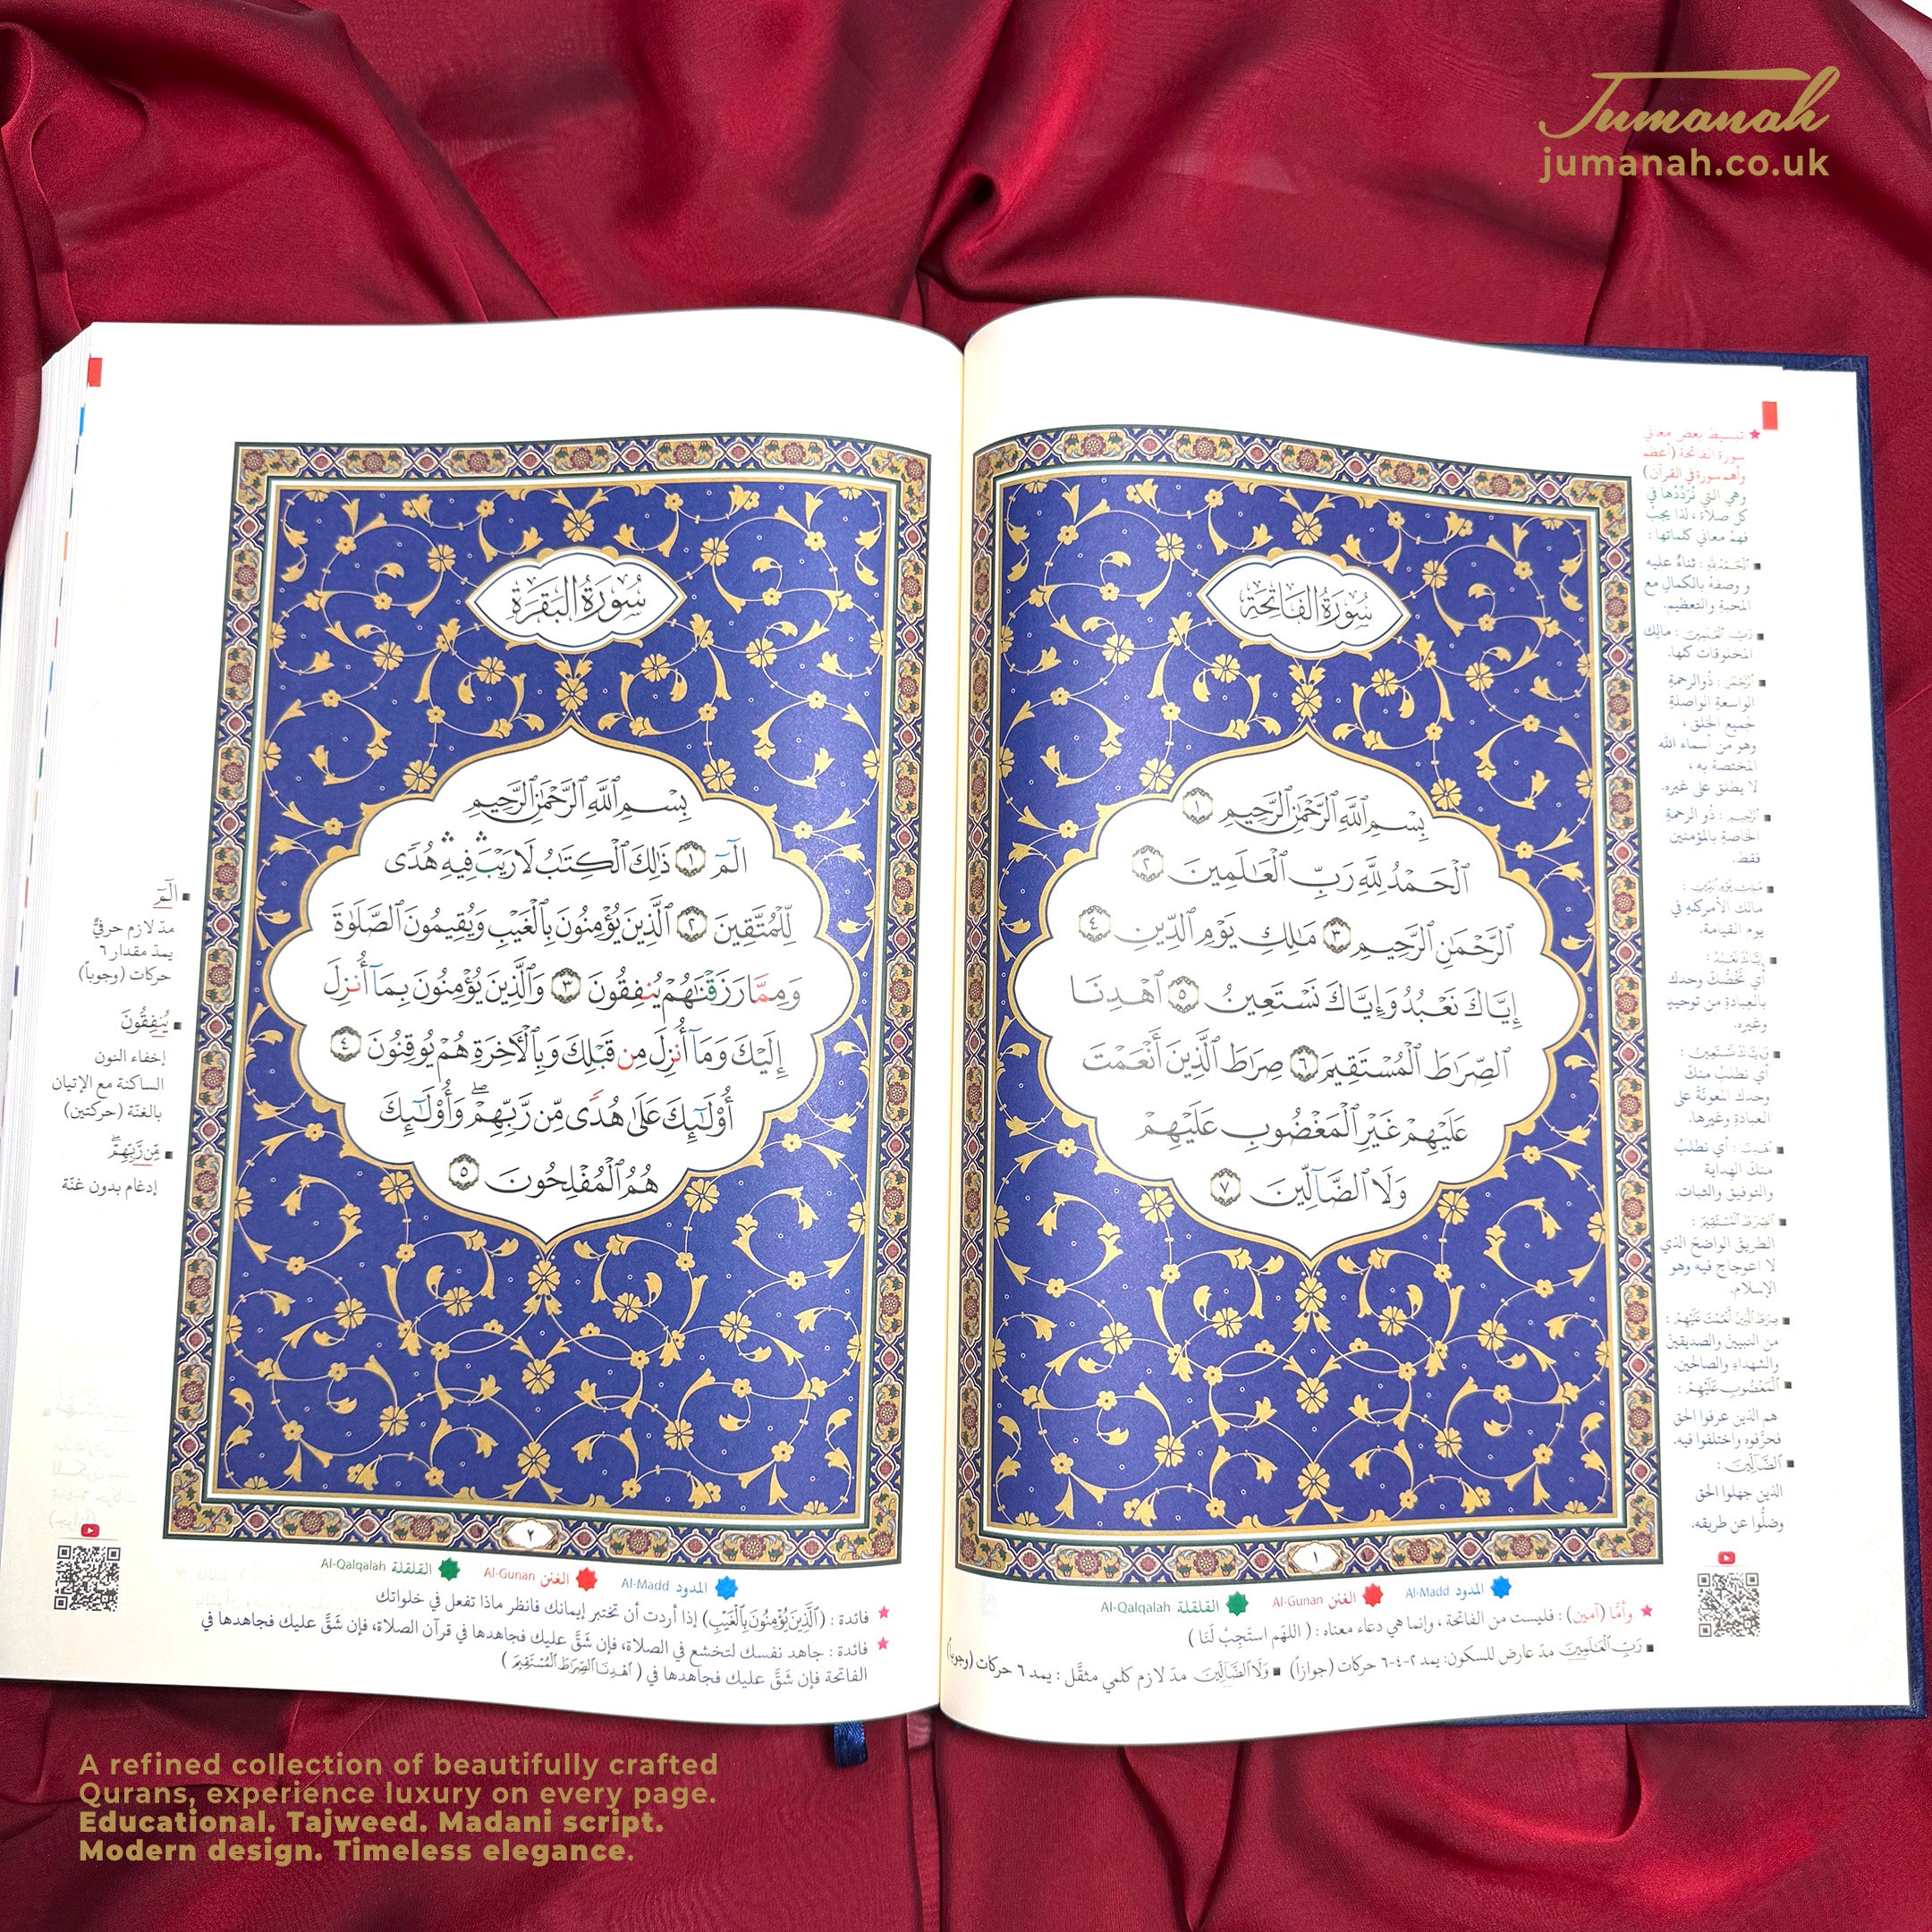 Jumanah
jumanah.co.uk
تبسيط بعض معاني
سورة الفاتحة (أعظم
وأهم سورة في القرآن)
وهي التي نُرَدِّدُها في
كل صلاة، لذا يجب
فهم معاني كلماتها :
ٱلْحَمْدُ لِلَّهِ : ثناءٌ عليه
و وصفهُ بالكمال مع
المحبة والتعظيم.
رَبِّ ٱلْعَٰلَمِينَ : مالِك
المخلوقات كلها.
ٱلرَّحْمَٰنِ : ذُو الرحمةِ
الواسعةِ الواصلةِ
لجميع الخلق ،
وهو من أسماء الله
المختصة به ،
لا يطلق على غيره.
ٱلرَّحِيمِ : ذُو الرحمةِ
الخاصةِ بالمؤمنين
فقط.
مَٰلِكِ يَوْمِ ٱلدِّينِ :
مالك الأمر كله في
يوم القيامة.
إِيَّاكَ نَعْبُدُ :
أي نَخُصُّكَ وحدك
بالعبادةِ من توحيدٍ
وغيره.
وَإِيَّاكَ نَسْتَعِينُ :
أي نطلبُ منكَ
وحدك المعونةَ على
العبادةِ وغيرها.
ٱهْدِنَا : أي نطلبُ
منكَ الهداية
والتوفيق والثبات.
ٱلصِّرَٰطَ ٱلْمُسْتَقِيمَ :
الطريقَ الواضحَ الذي
لا اعوجاج فيه وهو
الإسلام.
صِرَٰطَ ٱلَّذِينَ أَنْعَمْتَ عَلَيْهِمْ :
من النبيينَ والصديقينَ
والشهداءِ والصالحين.
ٱلْمَغْضُوبِ عَلَيْهِمْ :
هم الذين عرفوا الحق
فحرَّفوه واختلفوا فيه.
ٱلضَّآلِّينَ :
الذين جهلوا الحق
وضلُّوا عن طريقه.
سُورَةُ الفَاتِحَةِ
بِسْمِ ٱللَّهِ ٱلرَّحْمَٰنِ ٱلرَّحِيمِ ١
ٱلْحَمْدُ لِلَّهِ رَبِّ ٱلْعَٰلَمِينَ ٢
ٱلرَّحْمَٰنِ ٱلرَّحِيمِ ٣ مَٰلِكِ يَوْمِ ٱلدِّينِ ٤
إِيَّاكَ نَعْبُدُ وَإِيَّاكَ نَسْتَعِينُ ٥ ٱهْدِنَا
ٱلصِّرَٰطَ ٱلْمُسْتَقِيمَ ٦ صِرَٰطَ ٱلَّذِينَ أَنْعَمْتَ
عَلَيْهِمْ غَيْرِ ٱلْمَغْضُوبِ عَلَيْهِمْ
وَلَا ٱلضَّآلِّينَ ٧
١
المدود Al-Madd الغنن Al-Gunan القلقلة Al-Qalqalah
وأمَّا (آمين) : فليست من الفاتحة ، وإنما هي دعاء معناه : ( اللهم استَجِبْ لَنَا )
رَبِّ ٱلْعَٰلَمِينَ مدّ عارض للسكون: يمد ٢-٤-٦ حركات (جوازاً) وَلَا ٱلضَّآلِّينَ مدّ لازم كلمي مثقَّل : يمد ٦ حركات (وجوباً)
سُورَةُ البَقَرَةِ
بِسْمِ ٱللَّهِ ٱلرَّحْمَٰنِ ٱلرَّحِيمِ
الٓمٓ ١ ذَٰلِكَ ٱلْكِتَٰبُ لَا رَيْبَ ۛ فِيهِ ۛ هُدًى
لِّلْمُتَّقِينَ ٢ ٱلَّذِينَ يُؤْمِنُونَ بِٱلْغَيْبِ وَيُقِيمُونَ ٱلصَّلَوٰةَ
وَمِمَّا رَزَقْنَٰهُمْ يُنفِقُونَ ٣ وَٱلَّذِينَ يُؤْمِنُونَ بِمَآ أُنزِلَ
إِلَيْكَ وَمَآ أُنزِلَ مِن قَبْلِكَ وَبِٱلْءَاخِرَةِ هُمْ يُوقِنُونَ ٤
أُو۟لَٰٓئِكَ عَلَىٰ هُدًى مِّن رَّبِّهِمْ ۖ وَأُو۟لَٰٓئِكَ
هُمُ ٱلْمُفْلِحُونَ ٥
الٓمٓ
مدّ لازم حرفيٌّ
يمدّ مقدار ٦
حركات (وجوباً)
يُنفِقُونَ
إخفاء النون
الساكنة مع الإتيان
بالغنّة (حركتين)
مِّن رَّبِّهِمْ ۖ
إدغام بدون غنّة
٢
المدود Al-Madd الغنن Al-Gunan القلقلة Al-Qalqalah
فائدة : (ٱلَّذِينَ يُؤْمِنُونَ بِٱلْغَيْبِ) إذا أردت أن تختبر إيمانك فانظر ماذا تفعل في خلواتك
فائدة : جاهد نفسك لتخشع في الصلاة، فإن شَقَّ عليك فجاهدها في قرآن الصلاة، فإن شَقَّ عليك فجاهدها في
الفاتحة فإن شَقَّ عليك فجاهدها في ( ٱهْدِنَا ٱلصِّرَٰطَ ٱلْمُسْتَقِيمَ )
A refined collection of beautifully crafted
Qurans, experience luxury on every page.
Educational. Tajweed. Madani script.
Modern design. Timeless elegance.